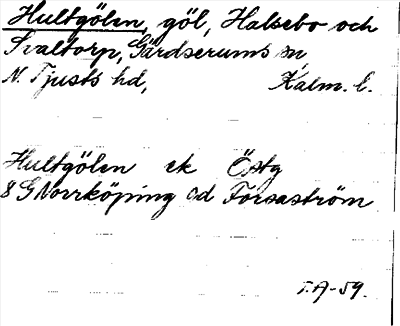 Hultgölen, göl, Halsebo och
Svaltorp, Gärdserums sn
N. Tjusts hd, Kalm. l.
Hultgölen ek Östg
8 G Norrköping cd Forsaström
T.A-59.